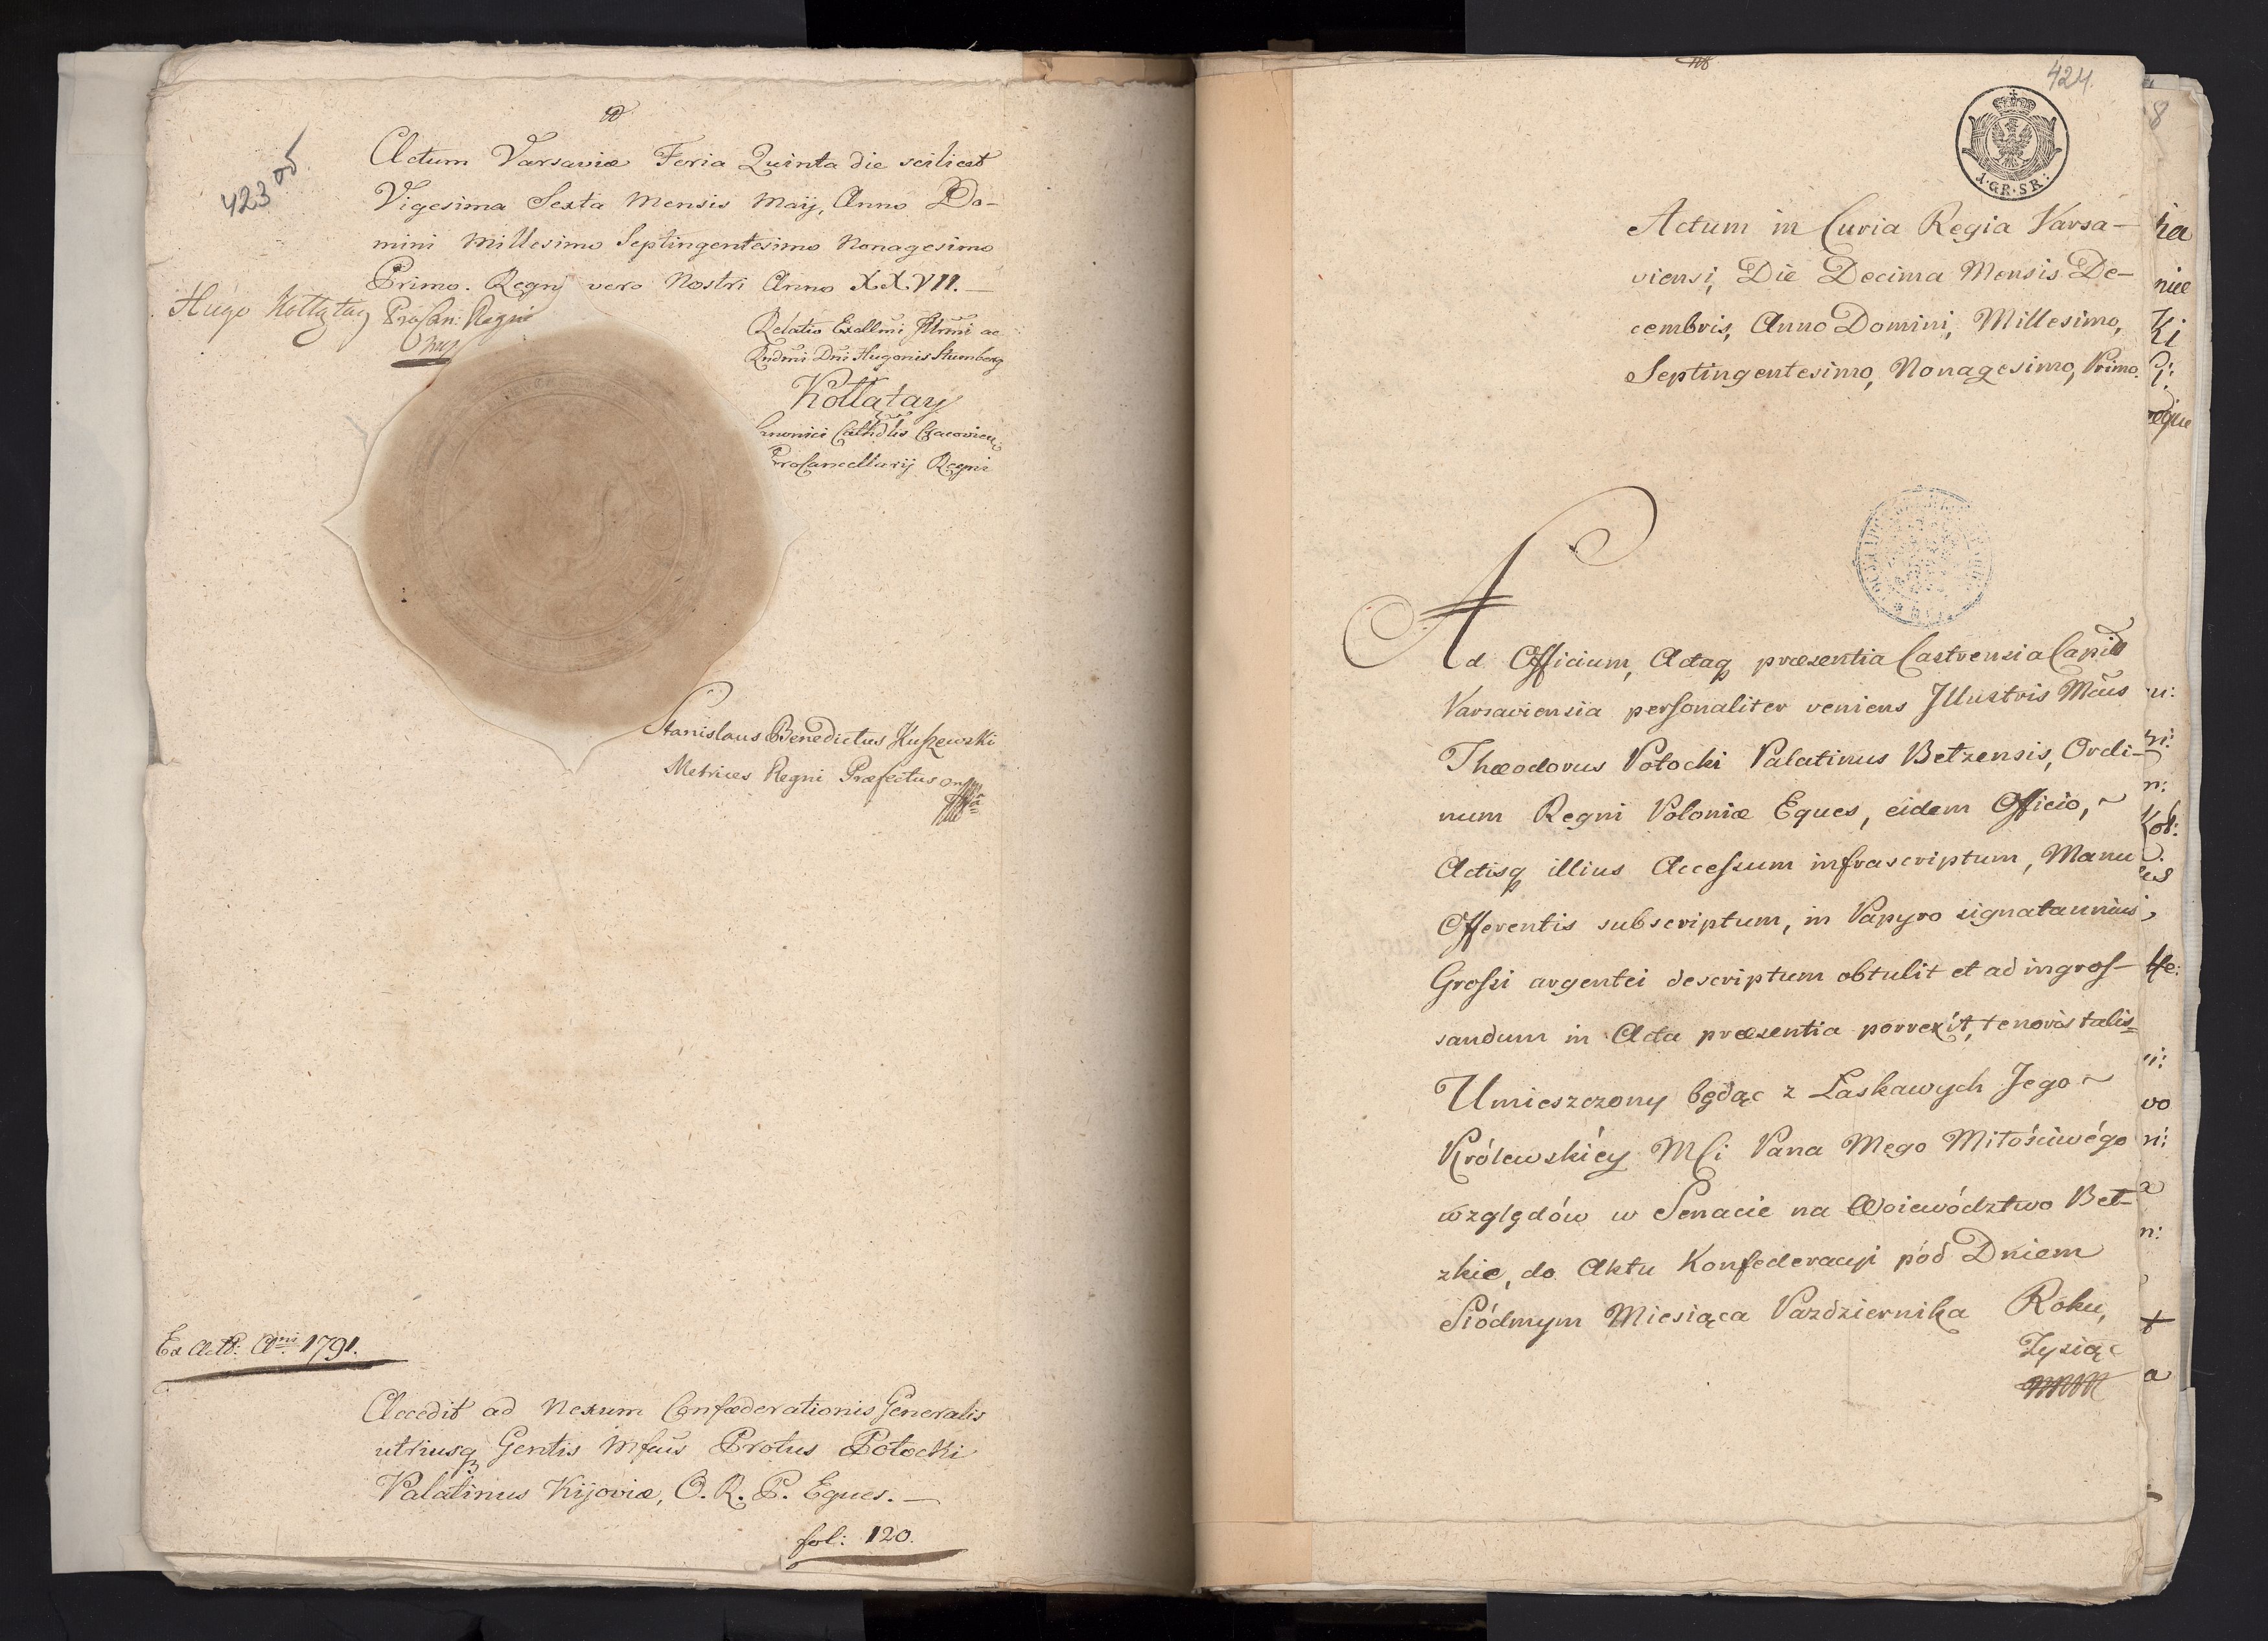 423 об
Actum Varsaviæ Feria Quinta die scilicet
Vigesima Sexta Mensis Maij, Anno Do-
mini Millesimo Septingentesimo Nonagesimo
Primo. Regnj vero Nostri Anno XXVII. —
Hugo Kołłątay ProCan: Regni
Relatio Excellmi Illrmi ac
Rndmi Dni Hugonis Stumberg
Kołłątay
Canonici Cathdlis Cracovien
ProCancellarij Regni
Stanislaus Benedictus Kuszewski
Metrices Regni Præfectus
Ex Actb: Ani 1791.
Accedit ad Nexum Confæderationis Generalis
utriusq Gentis Mfcus Protus Potocki
Palatinus Kijoviæ, O. R. P. Eques. —
fol: 120.
424.
1·GR·SR:
Actum in Curia Regia Varsa-
viensi, Die Decima Mensis De-
cembris, Anno Domini, Millesimo,
Septingentesimo, Nonagesimo, Primo.
Ad Officium, Actaq præsentia Castrensia Capitl
Varsaviensia personaliter veniens Jllustris Mcus
Theodorus Potocki Palatinus Betzensis, Ordi-
num Regni Poloniæ Eques, eidem Officio,
Actisq illius Accessum infrascriptum, Manu
Offerentis subscriptum, in Papyro signata unius
Grossi argentei descriptum obtulit et ad ingros-
sandum in Acta præsentia porrexit, tenoris talis
Umieszczony będąc z Łaskawych Jego
Królewskiéy MCi Pana Mego Miłościwégo
względów w Senacie na Woiewództwo Bet-
zkie, do Aktu Konfederacyi pód Dniem
Siódmym Miesiąca Pazdziernika Roku,
Tysiąc